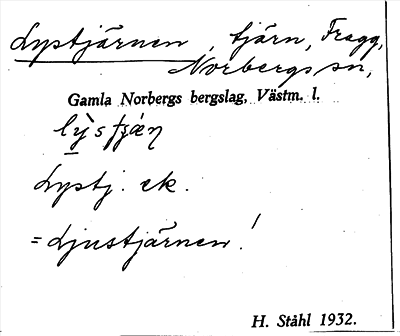 Lystjärnen, tjärn, Fragg,
Norbergs sn,
Gamla Norbergs bergslag, Västm. l.
Lystj. ek.
= Ljustjärnen!
H. Ståhl 1932.